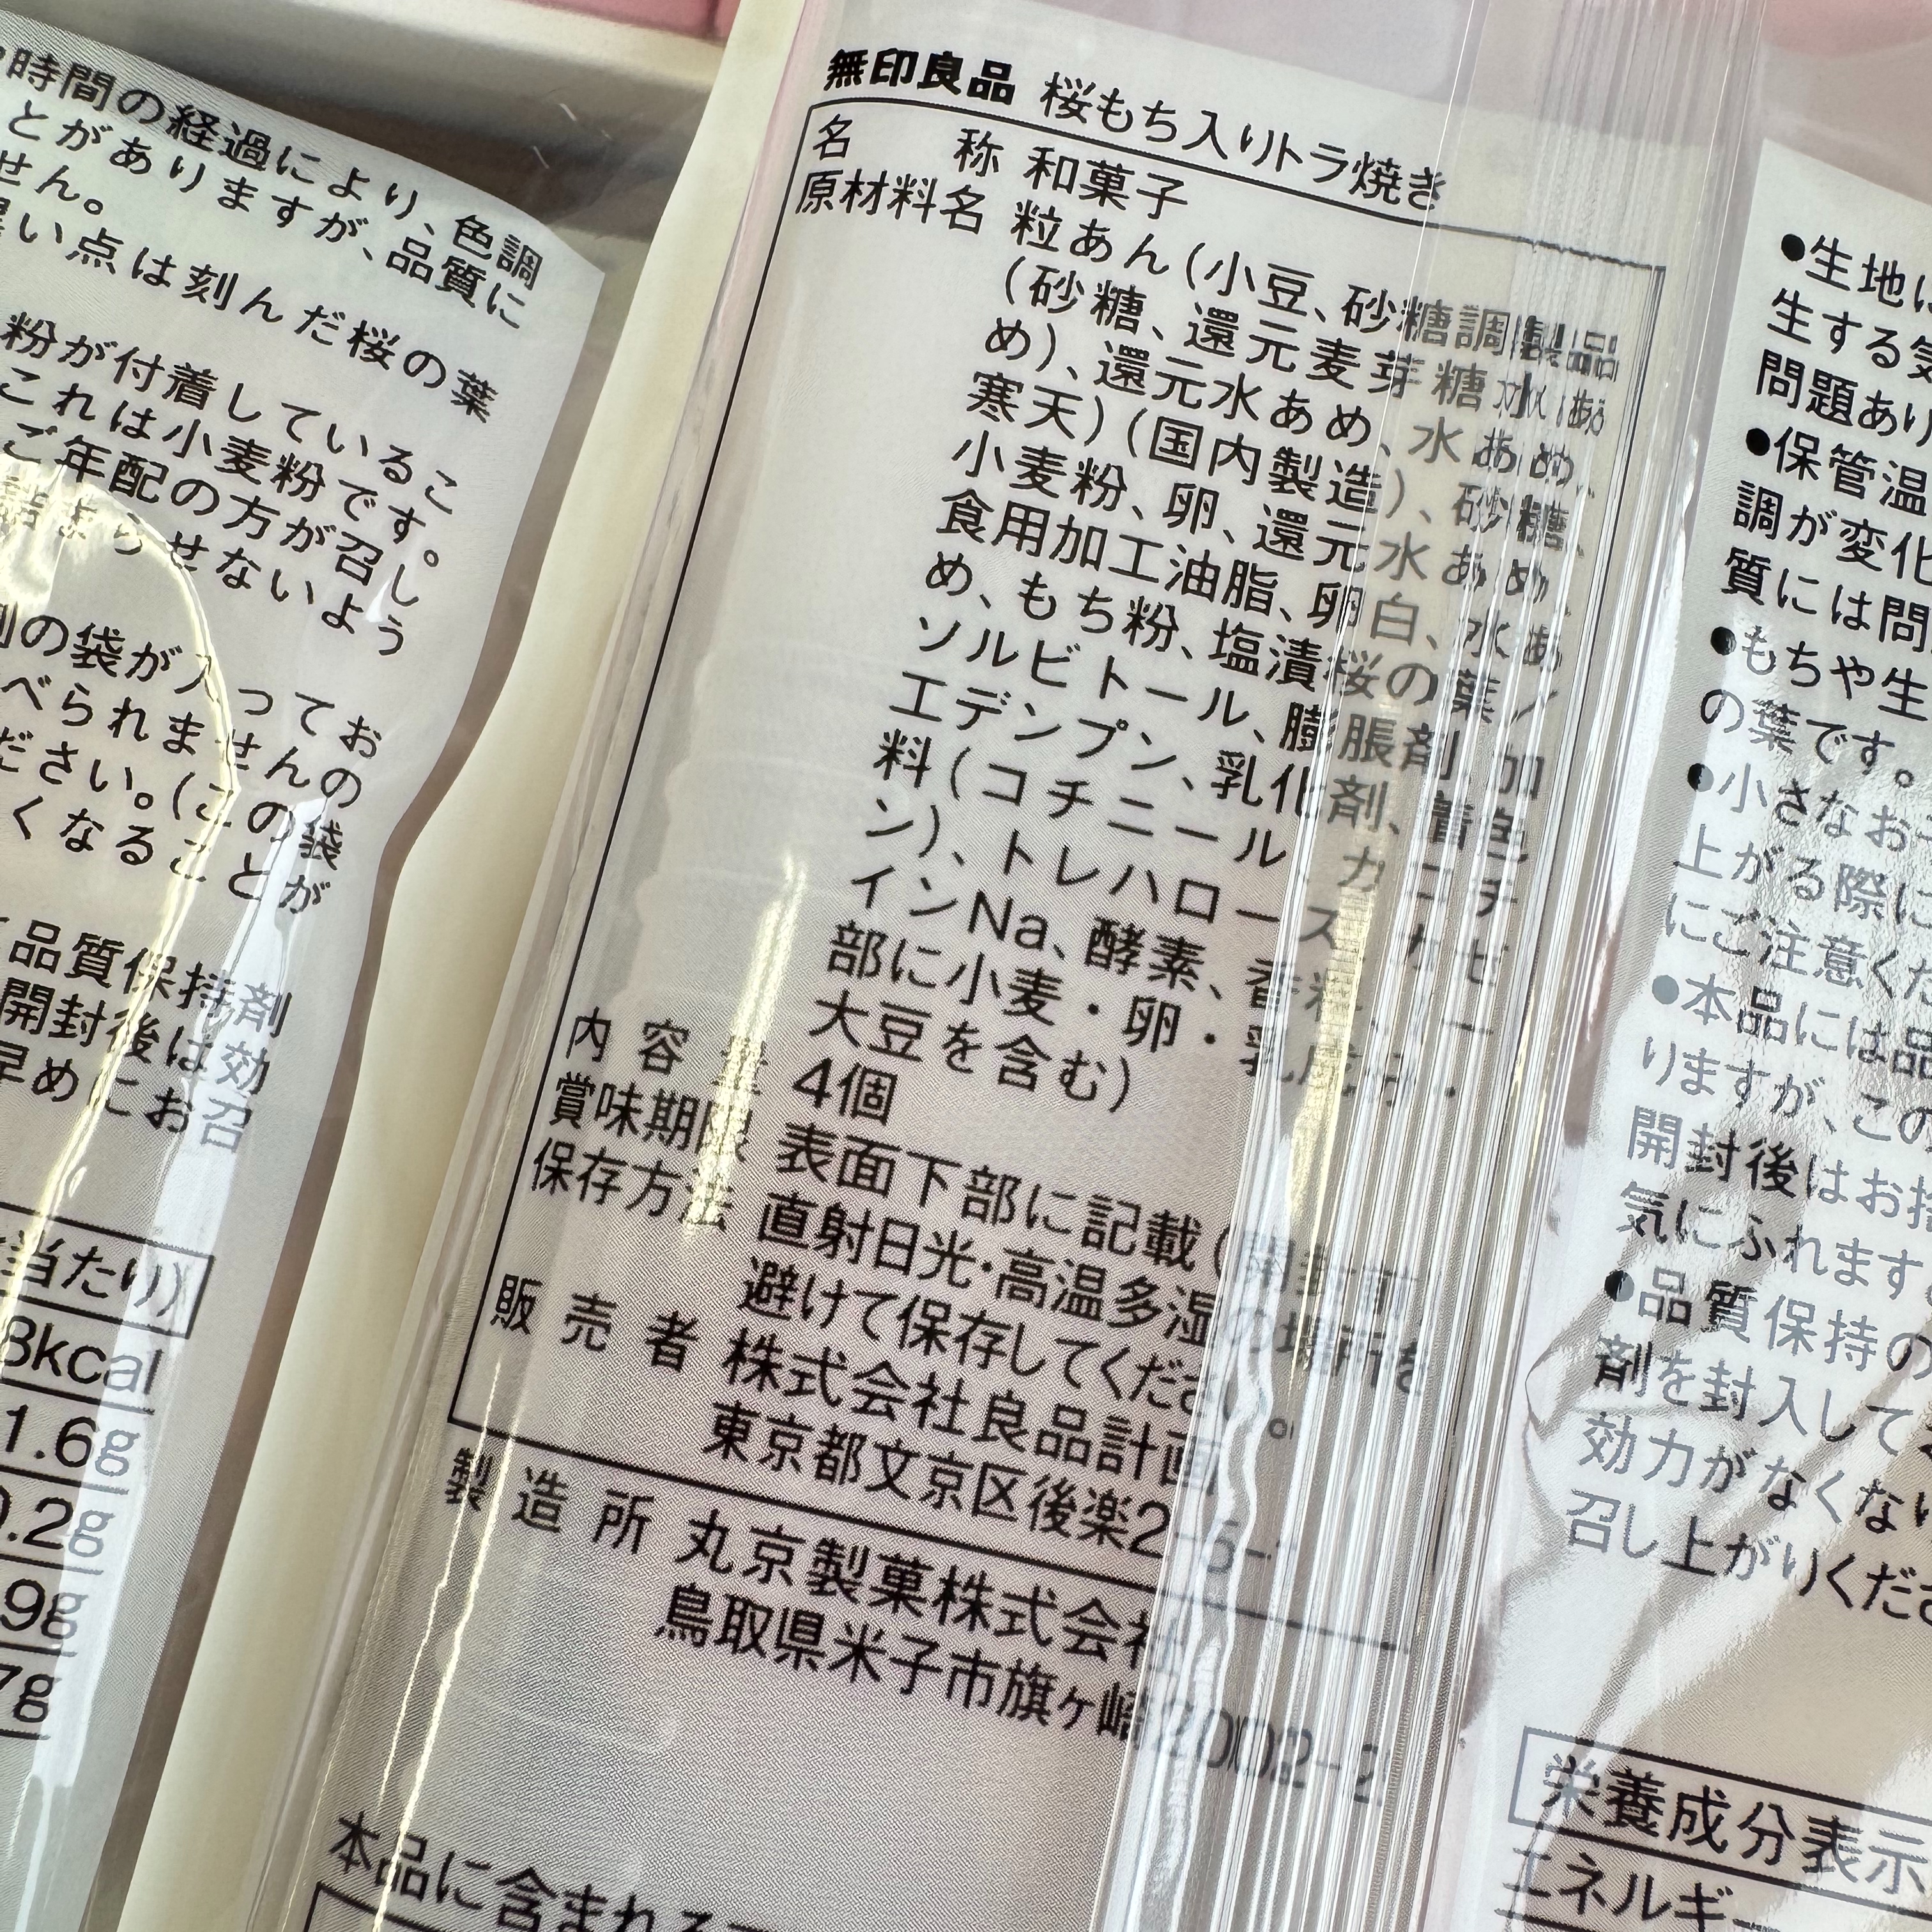 時間の経過により、色調
とがありますが、品質に
せん。
い点は刻んだ桜の葉
粉が付着しているこ
これは小麦粉です。
ご年配の方が召し
らせないよう
の袋が入ってお
べられませんの
ださい。(この袋
くなることが
品質保持剤
開封後は効
早めにお召
当たり)
8kcal
1.6g
.2g
.9g
7g
無印良品 桜もち入りトラ焼き
名称 和菓子
原材料名 粒あん(小豆、砂糖調製品
(砂糖、還元麦芽糖水あ
め)、還元水あめ、水あめ、
寒天)(国内製造)、砂糖、
小麦粉、卵、還元水あめ、
食用加工油脂、卵白、水あ
め、もち粉、塩漬桜の葉/
ソルビトール、膨脹剤、加
工デンプン、乳化剤、着色
料(コチニール、カロチ
ン)、トレハロース、カゼ
インNa、酵素、香料、(一
部に小麦・卵・乳成分・
大豆を含む)
内容量 4個
賞味期限 表面下部に記載(開封前)
保存方法 直射日光・高温多湿の場所を
避けて保存してください。
販売者 株式会社良品計画
東京都文京区後楽2-5-
製造所 丸京製菓株式会社
鳥取県米子市旗ヶ崎2002-2
本品に含まれる
●生地
生する気
問題あり
●保管温
調が変化
質には問
●もちや生
の葉です。
●小さなお
上がる際に
にご注意くだ
●本品には品
りますが、この
開封後はお
気にふれます
●品質保持の
剤を封入して
効力がなくない
召し上がりくださ
栄養成分表示
エネルギー